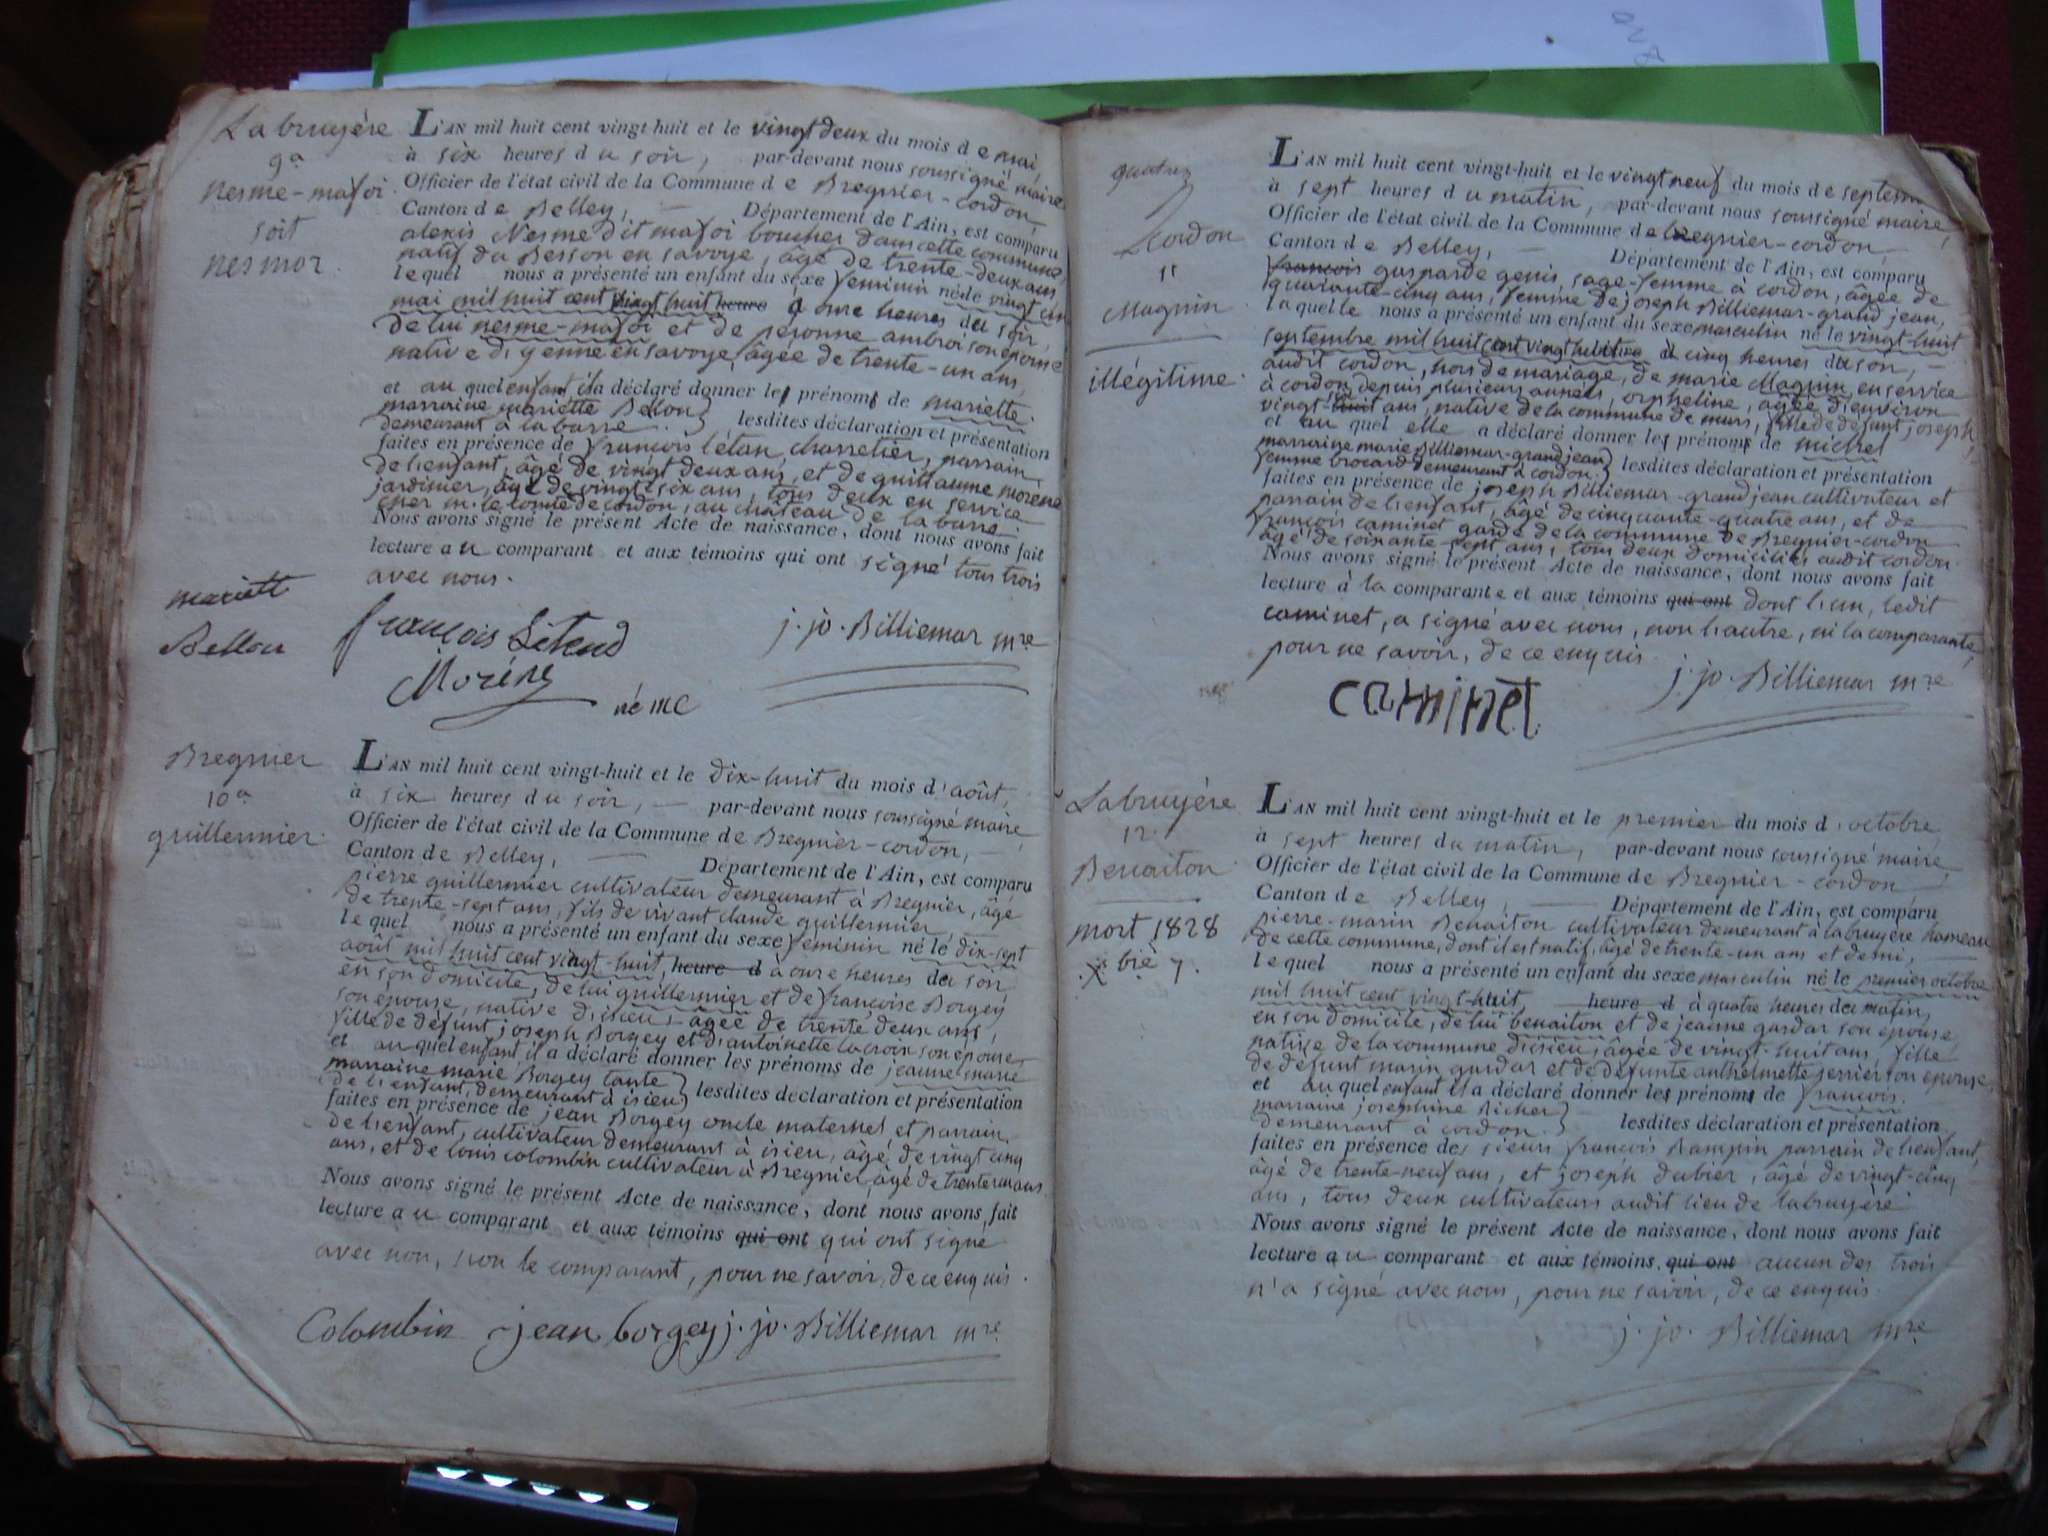 Labruyère
9a
nesme-mafoi
soit
nesmor
L'AN mil huit cent vingt-huit et le vingt deux du mois de mai,
à six heures du soir, par-devant nous soussigné maire
Officier de l'état civil de la Commune de Bregnier-cordon,
Canton de Belley, Département de l'Ain, est comparu
alexis Nesme dit mafoi boucher dans cette commune,
natif du Besson en savoye, âgé de trente-deux ans
lequel nous a présenté un enfant du sexe feminin né le vingt un
mai mil huit cent vingt huit heure à onze heures du soir,
de lui nesme-mafoi et de peronne ambroi son épouse
native d'yenne en savoye, âgée de trente-un ans,
et auquel enfant il a déclaré donner les prénoms de mariette
marraine mariette Bellon
demeurant à la barre. lesdites déclaration et présentation
faites en présence de françois létan, charretier, parrain
de l'enfant, âgé de vingt deux ans, et de guillaume morene
jardinier, âgé de vingt six ans, tous deux en service
chez m. le comte de cordon, au château de la barre.
Nous avons signé le présent Acte de naissance, dont nous avons fait
lecture au comparant et aux témoins qui ont signé tous trois
avec nous.
mariett
Bellon
françois Létend
j. jo. Billiemar mre
Moréne
néme
Bregnier
10a
guillermier
L'AN mil huit cent vingt-huit et le dix-huit du mois d'août,
à six heures du soir, par-devant nous soussigné maire
Officier de l'état civil de la Commune de Bregnier-cordon,
Canton de Belley, Département de l'Ain, est comparu
pierre guillermier cultivateur demeurant à Bregnier, âgé
de trente-sept ans, fils de vivant claude guillermier,
lequel nous a présenté un enfant du sexe feminin né le dix-sept
août mil huit cent vingt-huit, heure d à onze heures du soir
en son domicile, de lui guillermier et de françoise Borgey
son épouse, native d'isieu, âgée de trente deux ans,
fille de défunt joseph Borgey et d'antoinette lacroix son épouse,
et auquel enfant il a déclaré donner les prénoms de jeanne marie
marraine marie Borgey tante
de l'enfant, demeurant à isieu lesdites declaration et présentation
faites en présence de jean Borgey oncle maternel et parrain
de l'enfant, cultivateur demeurant à isieu, âgé de vingt cinq
ans, et de louis colombin cultivateur à Bregnier, âgé de trente un ans
Nous avons signé le présent Acte de naissance, dont nous avons fait
lecture au comparant et aux témoins qui ont qui ont signé
avec nou, non le comparant, pour ne savoir, de ce enquis.
Colombin jean borgey j. jo. Billiemar mre
cordon
11
Magnin
illégitime
L'AN mil huit cent vingt-huit et le vingt neuf du mois de septem
à sept heures du matin, par-devant nous soussigné maire,
Officier de l'état civil de la Commune de Bregnier-cordon,
Canton de Belley, Département de l'Ain, est comparu
françois gasparde genis, sage-femme à cordon, âgée de
quarante-cinq ans, femme de joseph Billiemar-grand jean,
laquelle nous a présenté un enfant du sexe masculin né le vingt-huit
septembre mil huit cent vingt huit à cinq heures du soir,
audit cordon, hors de mariage, de marie Magnin, en service
à cordon depuis plusieurs années, orpheline, âgée d'environ
vingt-huit ans, native de la commune de murs, fille de défunt joseph
et auquel elle a déclaré donner les prénoms de michel
marraine marie Billiemar-grand jean
femme brocard demeurant à cordon, lesdites déclaration et présentation
faites en présence de joseph Billiemar-grand jean cultivateur et
parrain de l'enfant, âgé de cinquante-quatre ans, et de
françois caminet garde de la commune de Bregnier-cordon
âgé de soixante-sept ans, tous deux domiciliés audit cordon.
Nous avons signé le présent Acte de naissance, dont nous avons fait
lecture à la comparante et aux témoins qui ont dont l'un, ledit
caminet, a signé avec nous, non l'autre, ni la comparante,
pour ne savoir, de ce enquis.
j. jo. Billiemar mre
caminet
Labruyère
12
Benaiton
mort 1828
Xbre 7.
L'AN mil huit cent vingt-huit et le premier du mois d'octobre
à sept heures du matin, par-devant nous soussigné maire
Officier de l'état civil de la Commune de Bregnier-cordon
Canton de Belley, Département de l'Ain, est comparu
pierre-marin Benaiton cultivateur demeurant à labruyère hameau
de cette commune, dont il est natif, âgé de trente-un ans et demi,
lequel nous a présenté un enfant du sexe masculin né le premier octobre
mil huit cent vingt-huit, heure d à quatre heures du matin,
en son domicile, de lui benaiton et de jeanne gardar son épouse,
native de la commune d'isieu, âgée de vingt-huit ans, fille
de défunt marin gardar et de défunte anthelmette perrier son épouse,
et auquel enfant il a déclaré donner les prénoms de françois.
marraine josephine Richer
demeurant à cordon. lesdites déclaration et présentation
faites en présence des sieurs françois Rampin parrain de l'enfant,
âgé de trente-neuf ans, et joseph dubier, âgé de vingt-cinq
ans, tous deux cultivateurs audit lieu de labruyère
Nous avons signé le présent Acte de naissance, dont nous avons fait
lecture au comparant et aux témoins, qui ont aucun des trois
n'a signé avec nous, pour ne savoir, de ce enquis.
j. jo. Billiemar mre